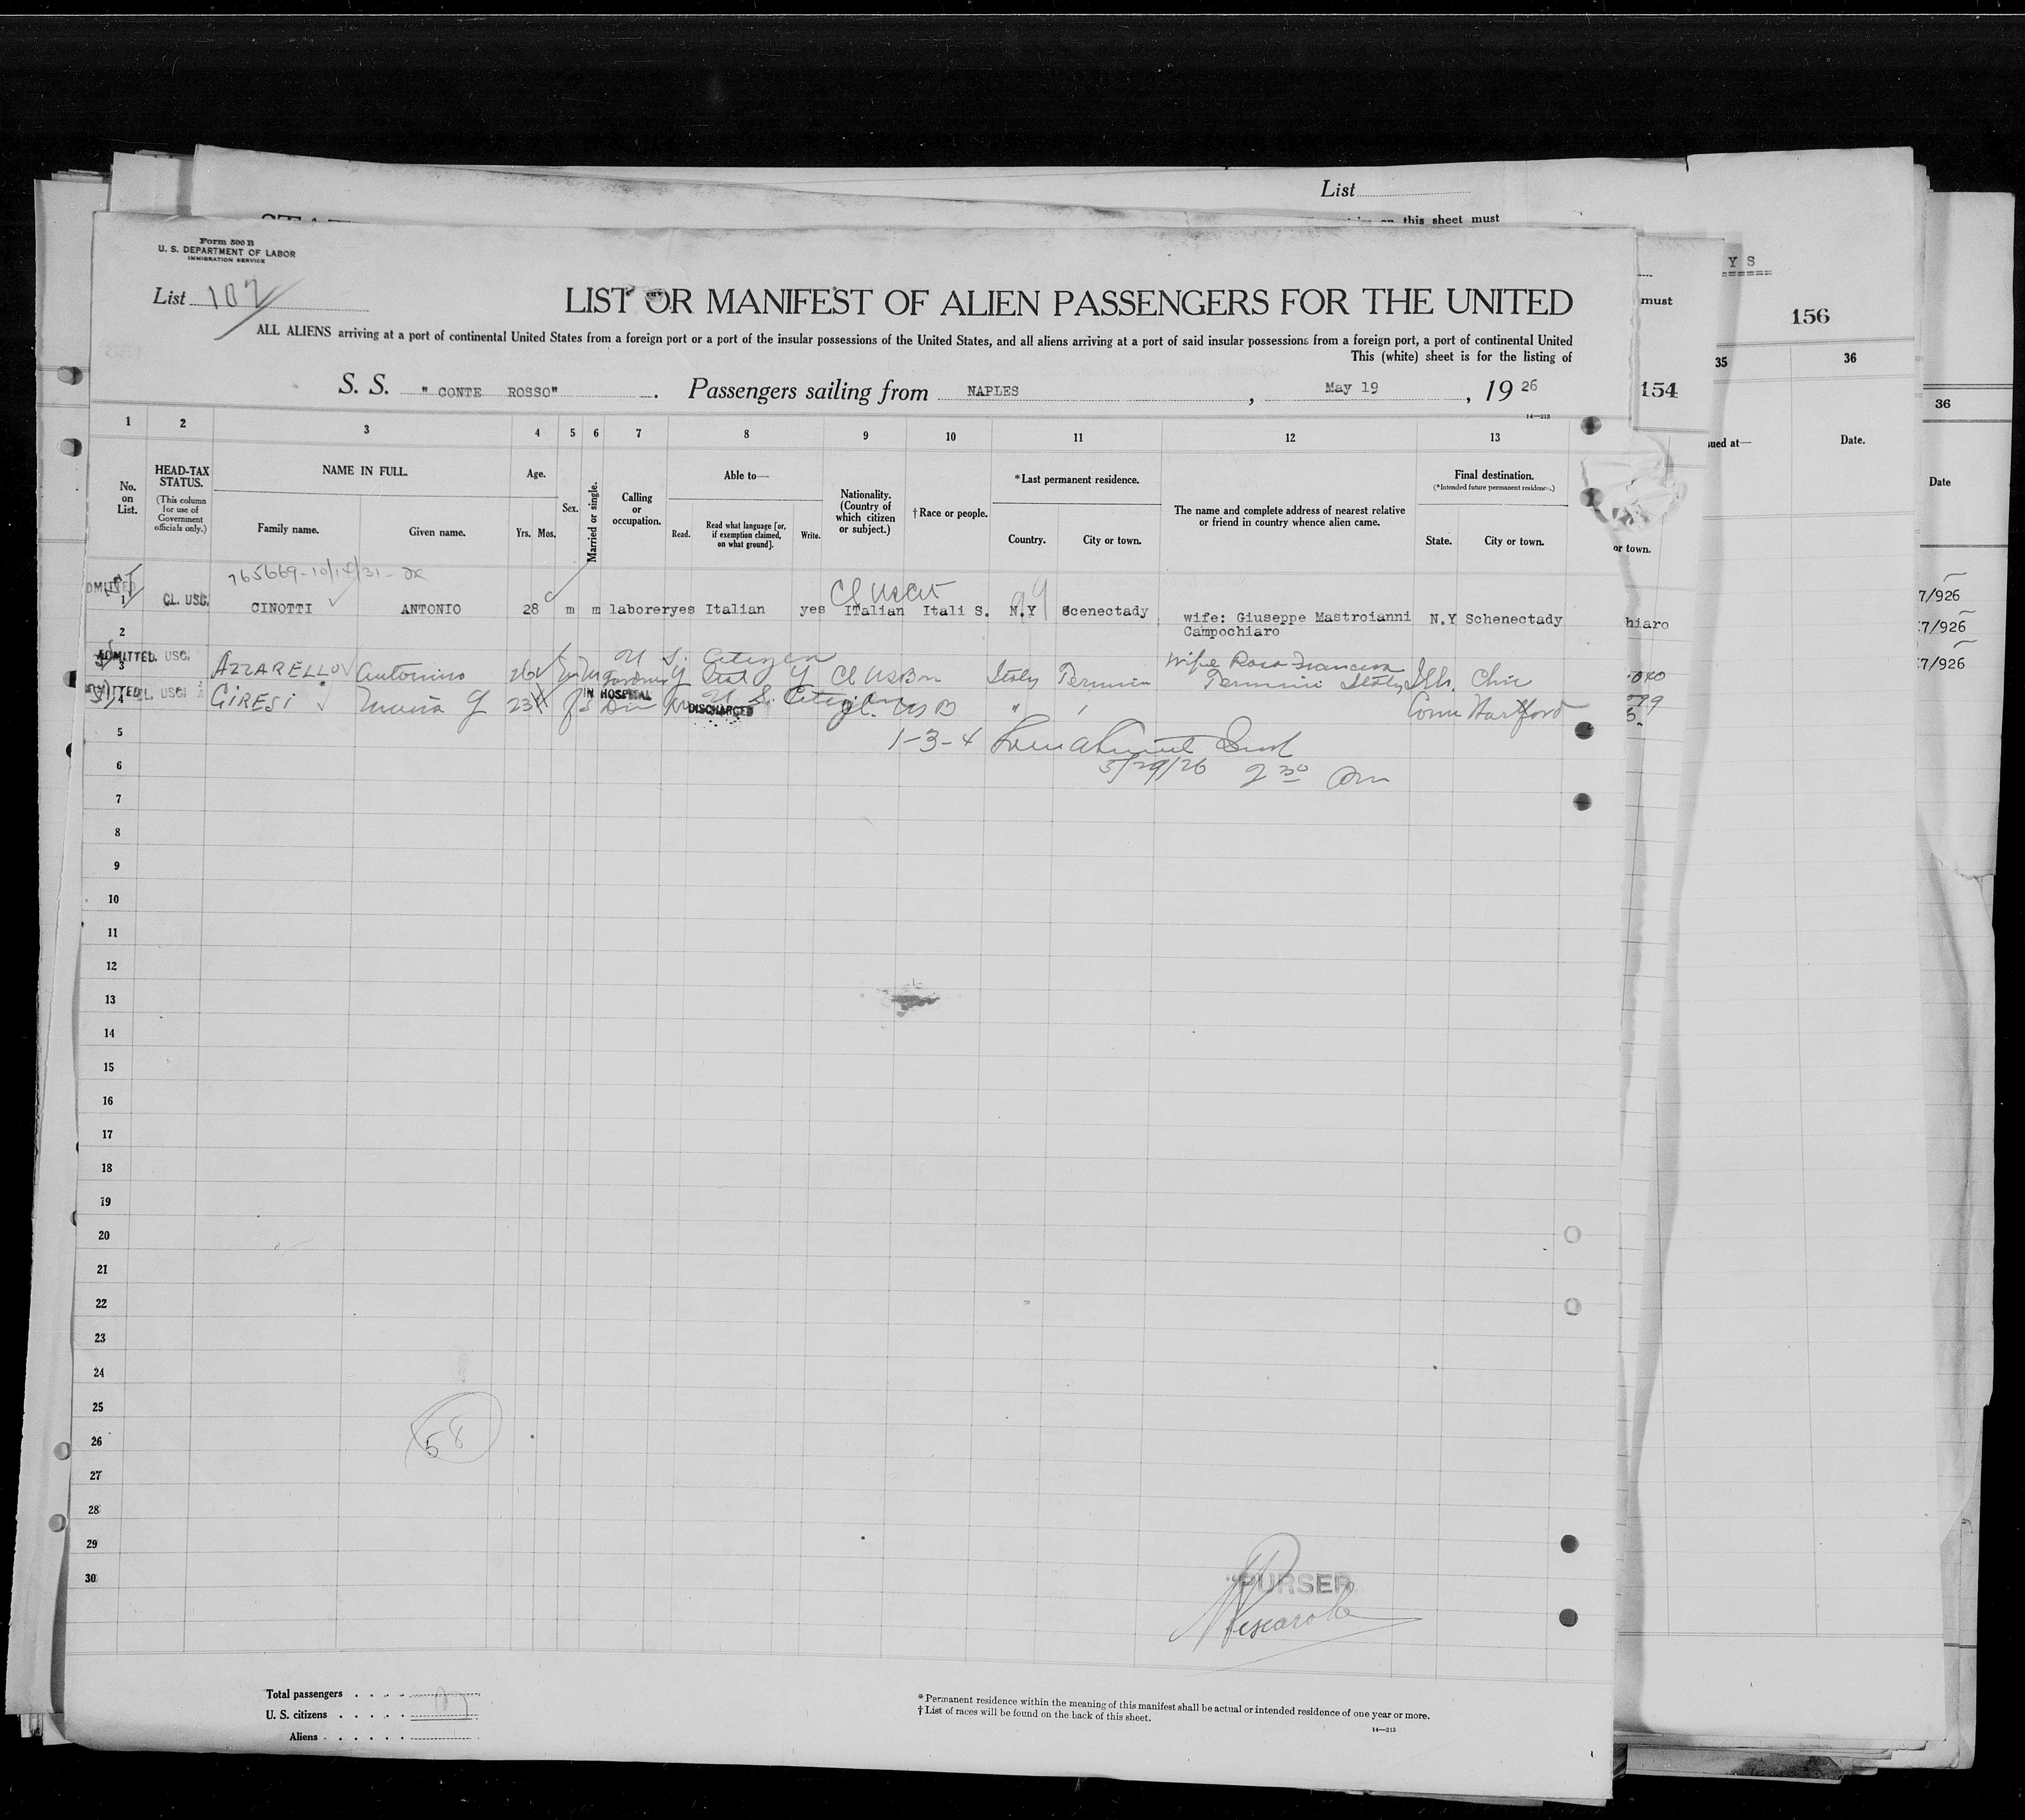 List
on this sheet must
Y S
must
156
35
36
154
36
ued at—
Date.
Date
or town.
7/926
7/926
7/926
hiaro
Form 500 B
U. S. DEPARTMENT OF LABOR
IMMIGRATION SERVICE
List 107
LIST OR MANIFEST OF ALIEN PASSENGERS FOR THE UNITED
ALL ALIENS arriving at a port of continental United States from a foreign port or a port of the insular possessions of the United States, and all aliens arriving at a port of said insular possessions from a foreign port, a port of continental United
This (white) sheet is for the listing of
S. S. "CONTE ROSSO". Passengers sailing from NAPLES, May 19, 1926
14—213
1 2 3 4 5 6 7 8 9 10 11 12 13
No. on List.
HEAD-TAX STATUS.
(This column for use of Government officials only.)
NAME IN FULL.
Family name. Given name.
Age.
Yrs. Mos.
Sex.
Married or single.
Calling or occupation.
Able to—
Read. Read what language [or, if exemption claimed, on what ground]. Write.
Nationality. (Country of which citizen or subject.)
†Race or people.
*Last permanent residence.
Country. City or town.
The name and complete address of nearest relative or friend in country whence alien came.
Final destination.
(*Intended future permanent residence.)
State. City or town.
1 CL. USC. CINOTTI ANTONIO 28 m m laborer yes Italian yes Italian Itali S. N.Y Scenectady wife: Giuseppe Mastroianni N.Y Schenectady
Campochiaro
2
U S. Citizen
ADMITTED. USC.
3 AZZARELLO Antonino 26 Y Y Cl Italy Termini Wife Rosa Francesca
Termini Italy Ills. Chic
4 GIRESI Maria G 23 IN HOSPITAL DISCHARGED U S. Citizen Conn Hartford
1-3-4
5
5/29/26 2 30
6
7
8
9
10
11
12
13
14
15
16
17
18
19
20
21
22
23
24
25
26
27
28
29
30
58
"PURSER
Total passengers
U. S. citizens
Aliens
*Permanent residence within the meaning of this manifest shall be actual or intended residence of one year or more.
†List of races will be found on the back of this sheet.
14—213